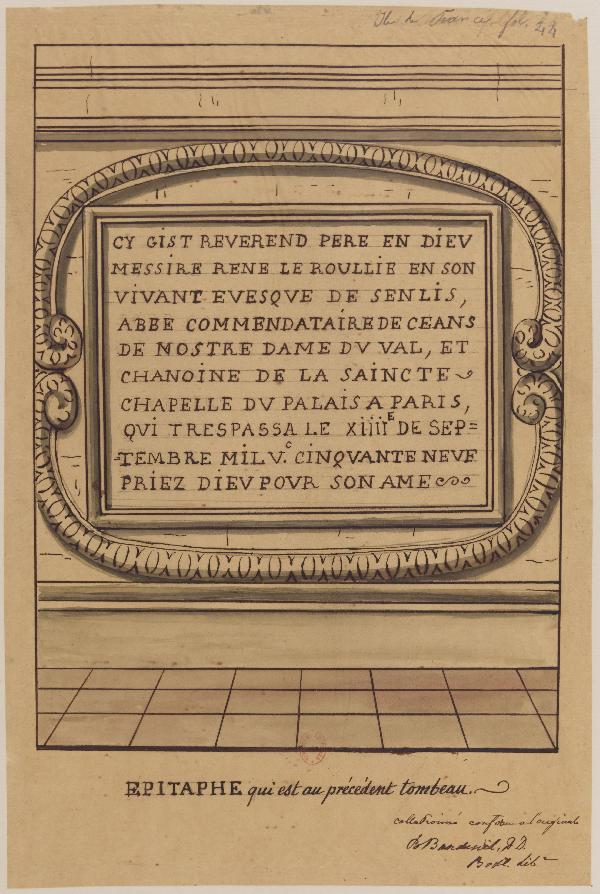 Ile de France fol. 44
CY GIST REVEREND PERE EN DIEV
MESSIRE RENE LE ROULLIE EN SON
VIVANT EVESQVE DE SENLIS,
ABBE COMMENDATAIRE DE CEANS
DE NOSTRE DAME DV VAL, ET
CHANOINE DE LA SAINCTE
CHAPELLE DV PALAIS A PARIS,
QVI TRESPASSA LE XIIIIE DE SEP=
-TEMBRE MIL V.C CINQVANTE NEVF
PRIEZ DIEV POVR SON AME
EPITAPHE qui est au précédent tombeau.
collationné conforme a l'original
B. Bandinel, D.D.
Bodl. Libr